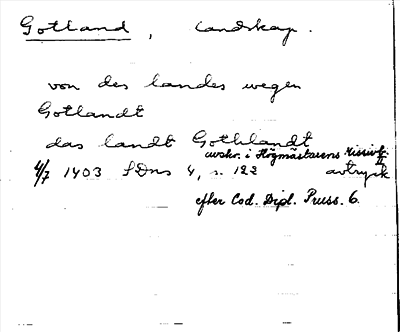 Gotland, landskap.
von des landes wegen
Gotlandt
das landt Gothlandt
avskr. i Högmästarens missivb. II
4/7 1403 SDns 4, s. 122 avtryck
efter Cod. Dipl. Pruss. 6.